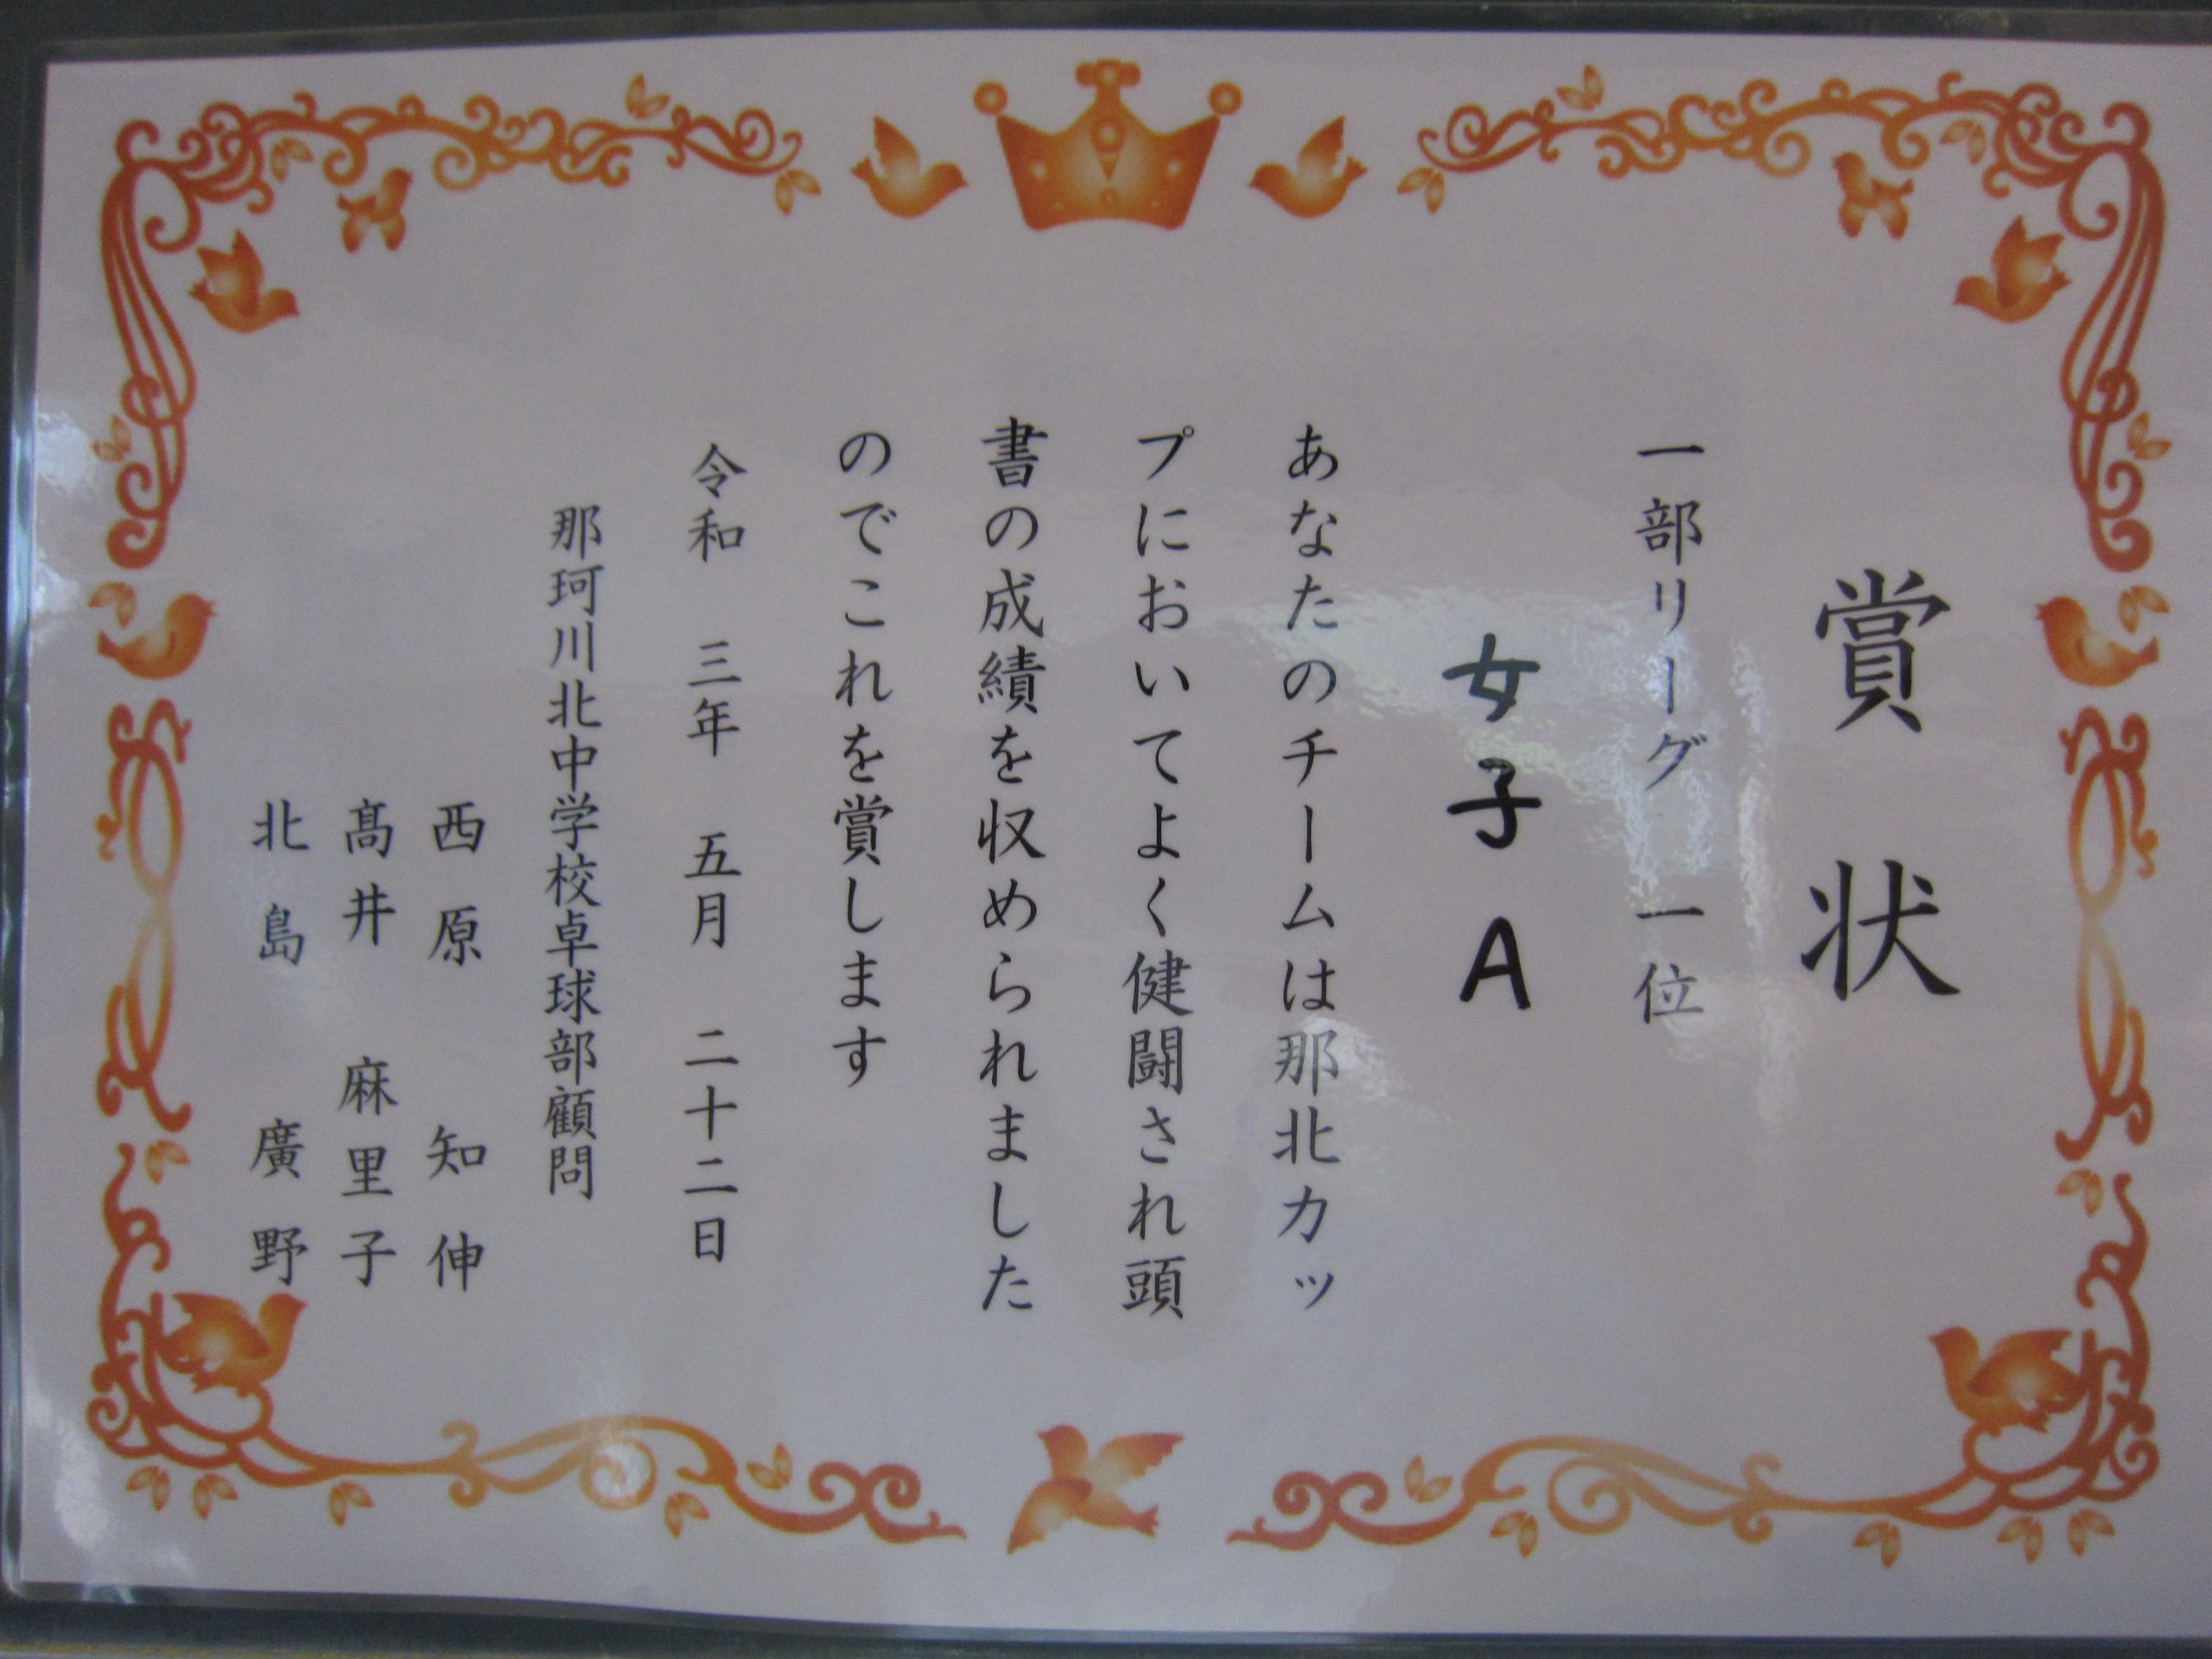 賞状
一部リーグ 一位
女子A
あなたのチームは那北カッ
プにおいてよく健闘され頭
書の成績を収められました
のでこれを賞します
令和 三年 五月 二十二日
那珂川北中学校卓球部顧問
西原 知伸
髙井 麻里子
北島 廣野